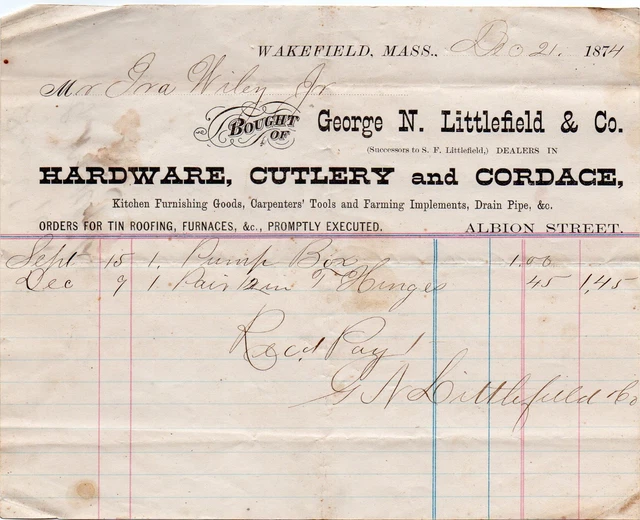 WAKEFIELD, MASS., Dec 21. 1874
Mr Ira Wiley Jr
BOUGHT OF
George N. Littlefield & Co.
(Successors to S. F. Littlefield,) DEALERS IN
HARDWARE, CUTLERY and CORDAGE,
Kitchen Furnishing Goods, Carpenters' Tools and Farming Implements, Drain Pipe, &c.
ORDERS FOR TIN ROOFING, FURNACES, &c., PROMPTLY EXECUTED. ALBION STREET.
Sept 15 1. Pump Box 1.00
Dec 9 1 Pair 12in T Hinges 45 1,45
Recd Payt
G N Littlefield & Co